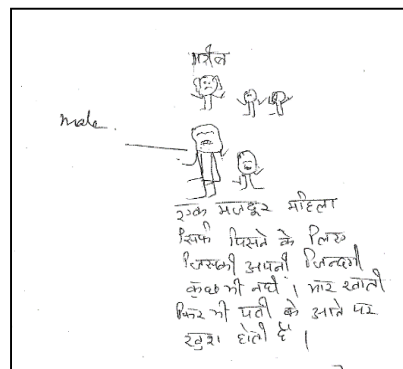 मशीन
male.
एक मजदूर महिला
सिर्फ पिसने के लिए
जिसकी अपनी जिन्दगी
कुछ भी नहीं। मार खाती
फिर भी पती के आने पर
खुश होती है।